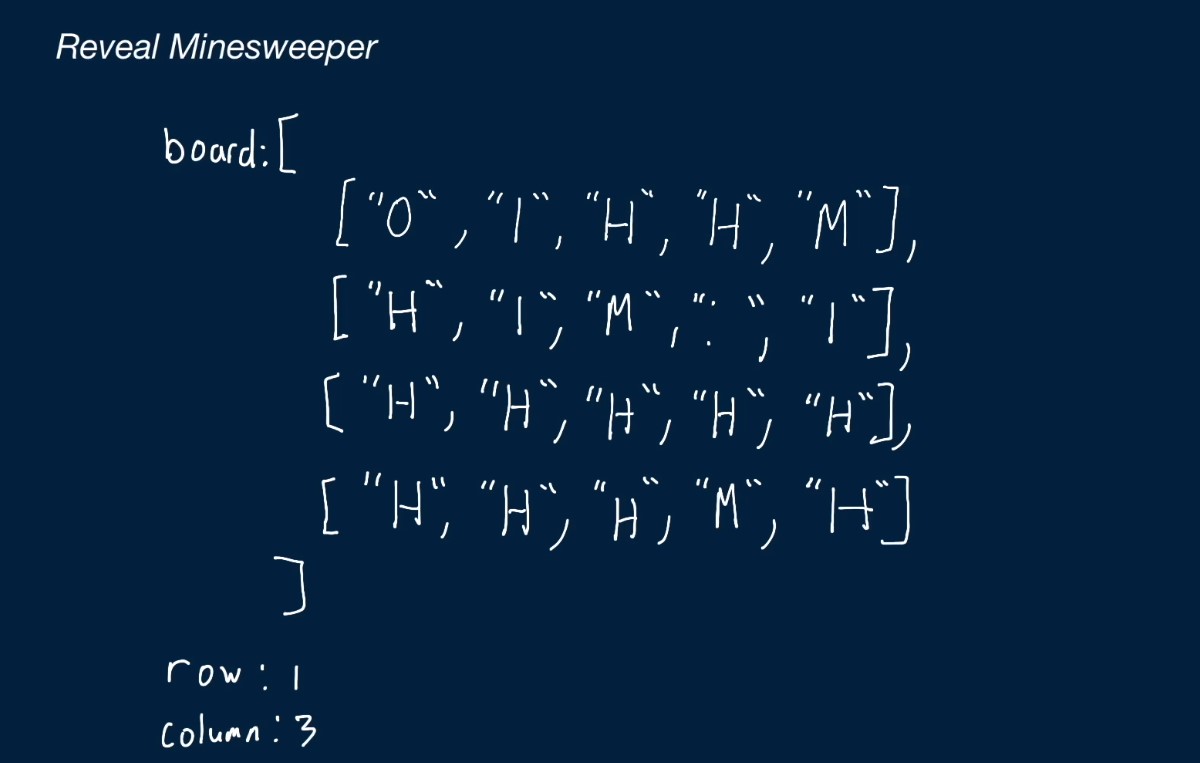 Reveal Minesweeper
board:[
["O", "1", "H", "H", "M"],
["H", "1", "M", ":", "1"],
["H", "H", "H", "H", "H"],
["H", "H", "H", "M", "H"]
]
row: 1
column: 3